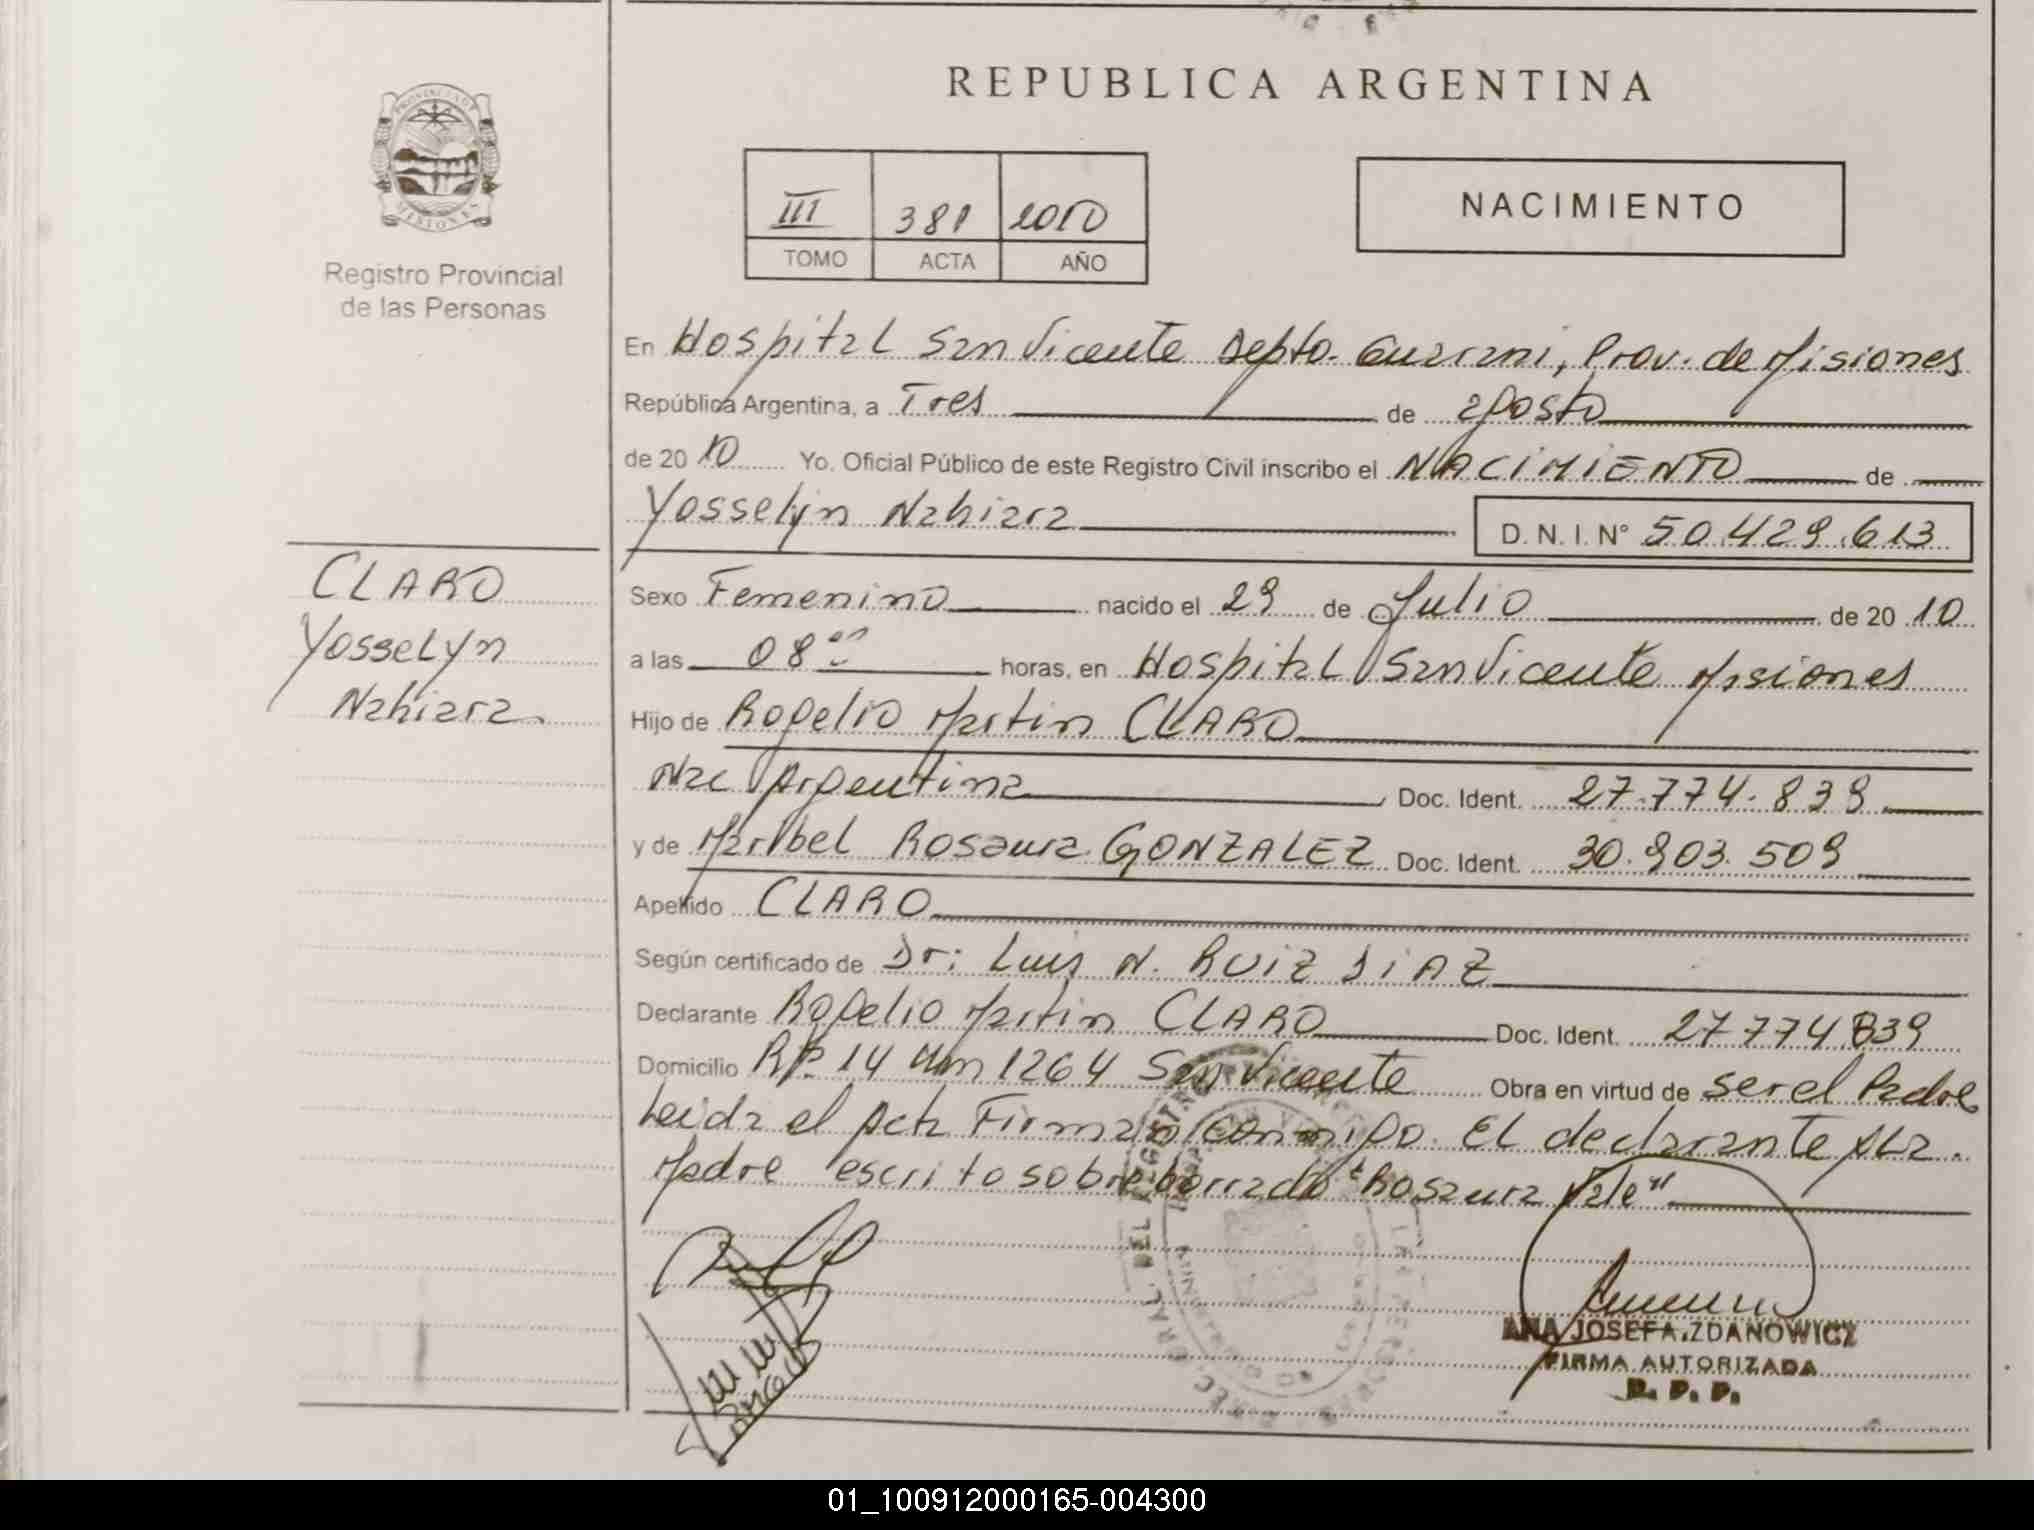 REPUBLICA ARGENTINA
PROVINCIA DE
MISIONES
Registro Provincial
de las Personas
III 381 2010
TOMO ACTA AÑO
NACIMIENTO
En Hospital San Vicente Depto. Guarani, Prov. de Misiones
República Argentina, a Tres de agosto
de 20 10 Yo. Oficial Público de este Registro Civil inscribo el NACIMIENTO de
Yosselyn Nahiara D. N. I. N° 50.429.613
CLARO
Yosselyn
Nahiara.
Sexo Femenino nacido el 29 de Julio de 20 10
a las 08 00 horas, en Hospital San Vicente Misiones
Hijo de Rogelio Martin CLARO
Nac Argentina Doc. Ident. 27.774.839
y de Maribel Rosaura GONZALEZ Doc. Ident. 30.903.509
Apellido CLARO
Según certificado de Dr: Luis N. RUIZ DIAZ
Declarante Rogelio Martin CLARO Doc. Ident. 27774839
Domicilio RP. 14 Km 1264 San Vicente Obra en virtud de ser el Padre
Leida el Acta Firman conmigo. El declarante y La.
Madre escrito sobre borrado "Rosaura Vale"
ANA JOSEFA ZDANOWICZ
FIRMA AUTORIZADA
R. P. P.
01_100912000165-004300